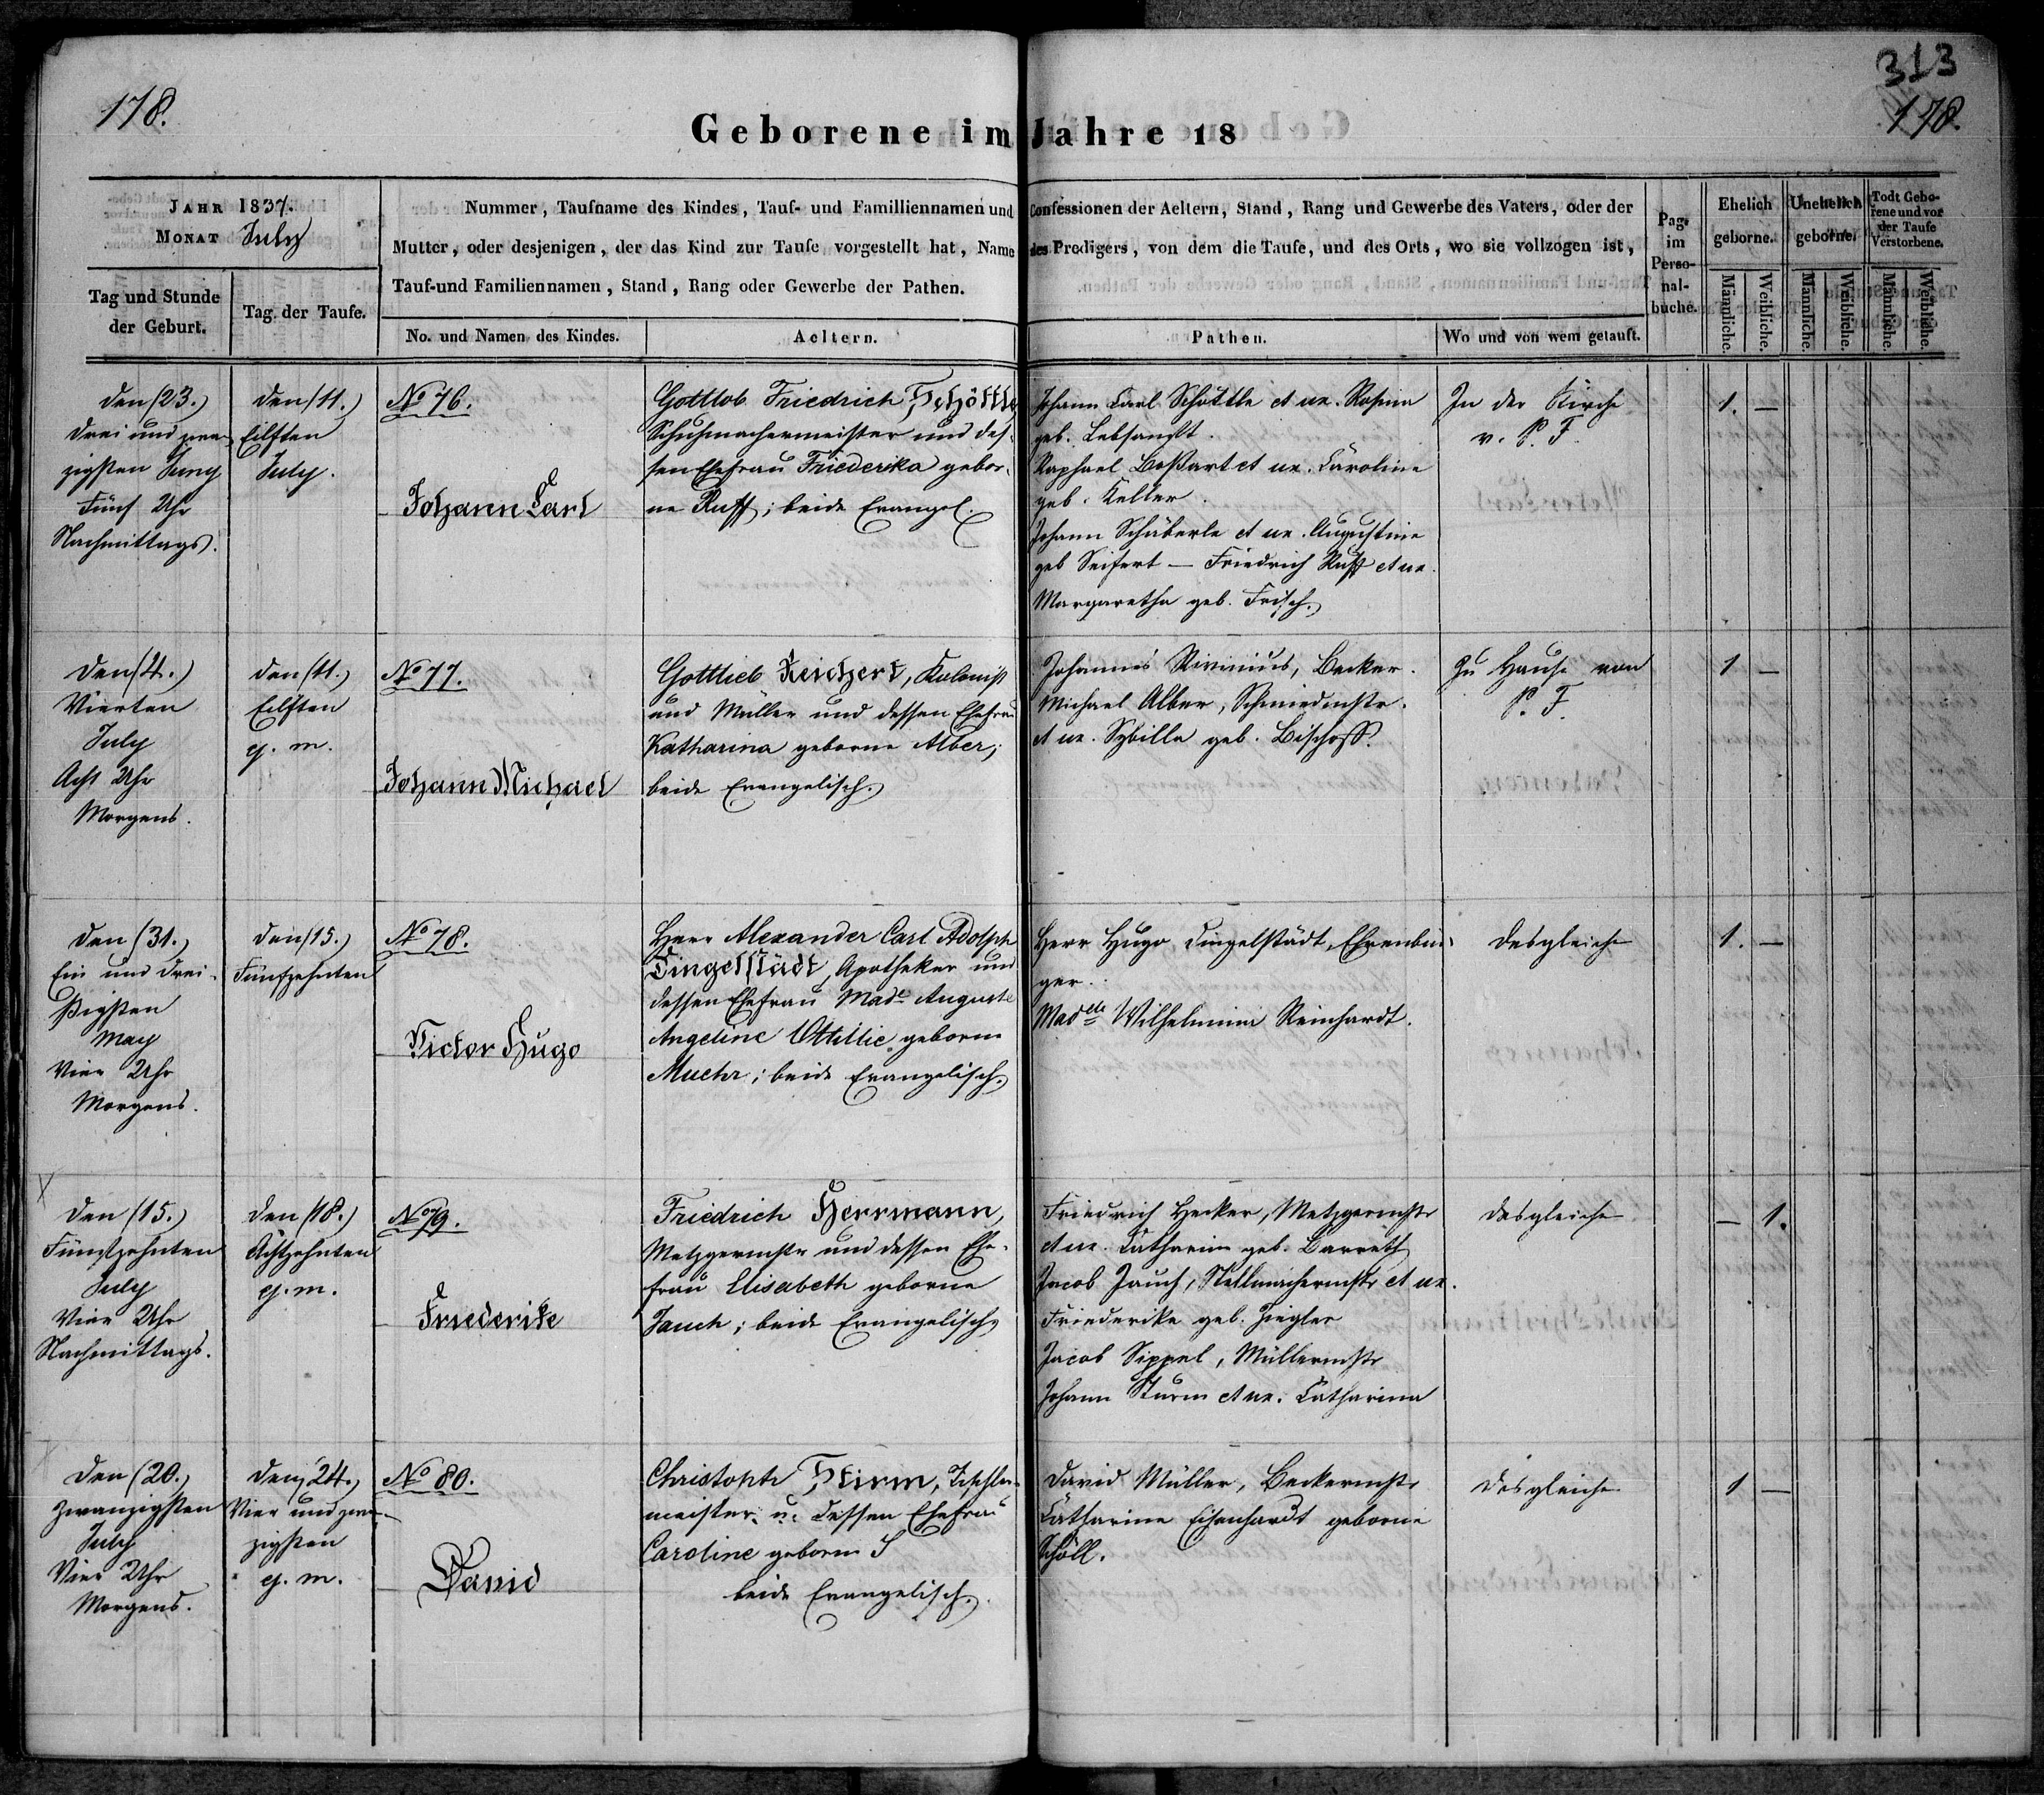 313
178.
178.
Geborene im Jahre 18
JAHR 1837.
MONAT July
Tag und Stunde der Geburt.
Tag der Taufe.
Nummer, Taufname des Kindes, Tauf- und Familliennamen und Confessionen der Aeltern, Stand, Rang und Gewerbe des Vaters, oder der
Mutter, oder desjenigen, der das Kind zur Taufe vorgestellt hat, Name des Predigers, von dem die Taufe, und des Orts, wo sie vollzogen ist,
Tauf-und Familiennamen, Stand, Rang oder Gewerbe der Pathen.
No. und Namen des Kindes.
Aeltern.
Pathen.
Wo und von wem getauft.
Pag. im Perso-nal-buche.
Ehelich geborne.
Unehelich geborne.
Todt Gebo-rene und vor der Taufe Verstorbene.
Männliche.
Weibliche.
Männliche.
Weibliche.
Männliche.
Weibliche.
den (23.)
drei und zwan
zigsten Juny
Fünf Uhr
Nachmittags.
den (11.)
Eilften
July.
No 76.
Johann Carl
Gottlob Friedrich Schöttle
Schuhmachermeister und des-
sen Ehefrau Friederika gebor-
ne Ruff; beide Evangel.
Johann Carl Schöttle et ux. Rosina
geb. Lebsanft.
Raphael Boßart et ux. Caroline
geb. Keller.
Johann Schäberle et ux. Augustine
geb Seifert — Friedrich Ruff et ux.
Margaretha geb. Frisch.
In der Kirche
v. P. F.
1. —
den (4.)
Vierten
July
Acht Uhr
Morgens.
den (11.)
Eilften
ej. m.
No 77.
Johann Michael
Gottlieb Reichert, Kolonist
und Müller und dessen Ehefrau
Katharina geborne Alber;
beide Evangelisch.
Johannes Rivinius, Becker.
Michael Alber, Schmiedmstr.
et ux. Sybilla geb. Bischoff.
Zu Hause von
P. F.
1 —
den (31.)
Ein und drei-
ßigsten
May
Vier Uhr
Morgens.
den (15.)
Fünfzehnten
No 78.
Victor Hugo
Herr Alexander Carl Adolph
Dingelstädt, Apotheker und
dessen Ehefrau Made Auguste
Angeline Ottillie geborne
Muehr; beide Evangelisch.
Herr Hugo Dingelstädt, Ehrenbür-
ger.
Madelle Wilhelmina Reinhardt.
desgleichen
1. —
den (15.)
Fünfzehnten
July
Vier Uhr
Nachmittags.
den (18.)
Achtzehnten
ej. m.
No 79.
Friederike
Friedrich Herrmann,
Metzgermstr und dessen Ehe-
frau Elisabeth geborne
Jauch; beide Evangelisch
Friedrich Hecker, Metzgermstr
et ux. Catharina geb. Barreth
Jacob Jauch, Stellmachermstr et ux.
Friederike geb. Ziegler
Jacob Sippel, Müllermstr
Johann Sturm et ux. Catharina
desgleichen
— 1.
den (20.)
Zwanzigsten
July
Vier Uhr
Morgens.
den 24.)
Vier und zwan-
zigsten
ej. m.
No 80.
David
Christoph Stirm, Tischler-
meister u. dessen Ehefrau
Caroline geborne S
beide Evangelisch.
David Müller, Beckermstr
Catharina Eisenhardt geborne
Schöll.
desgleichen
1 —